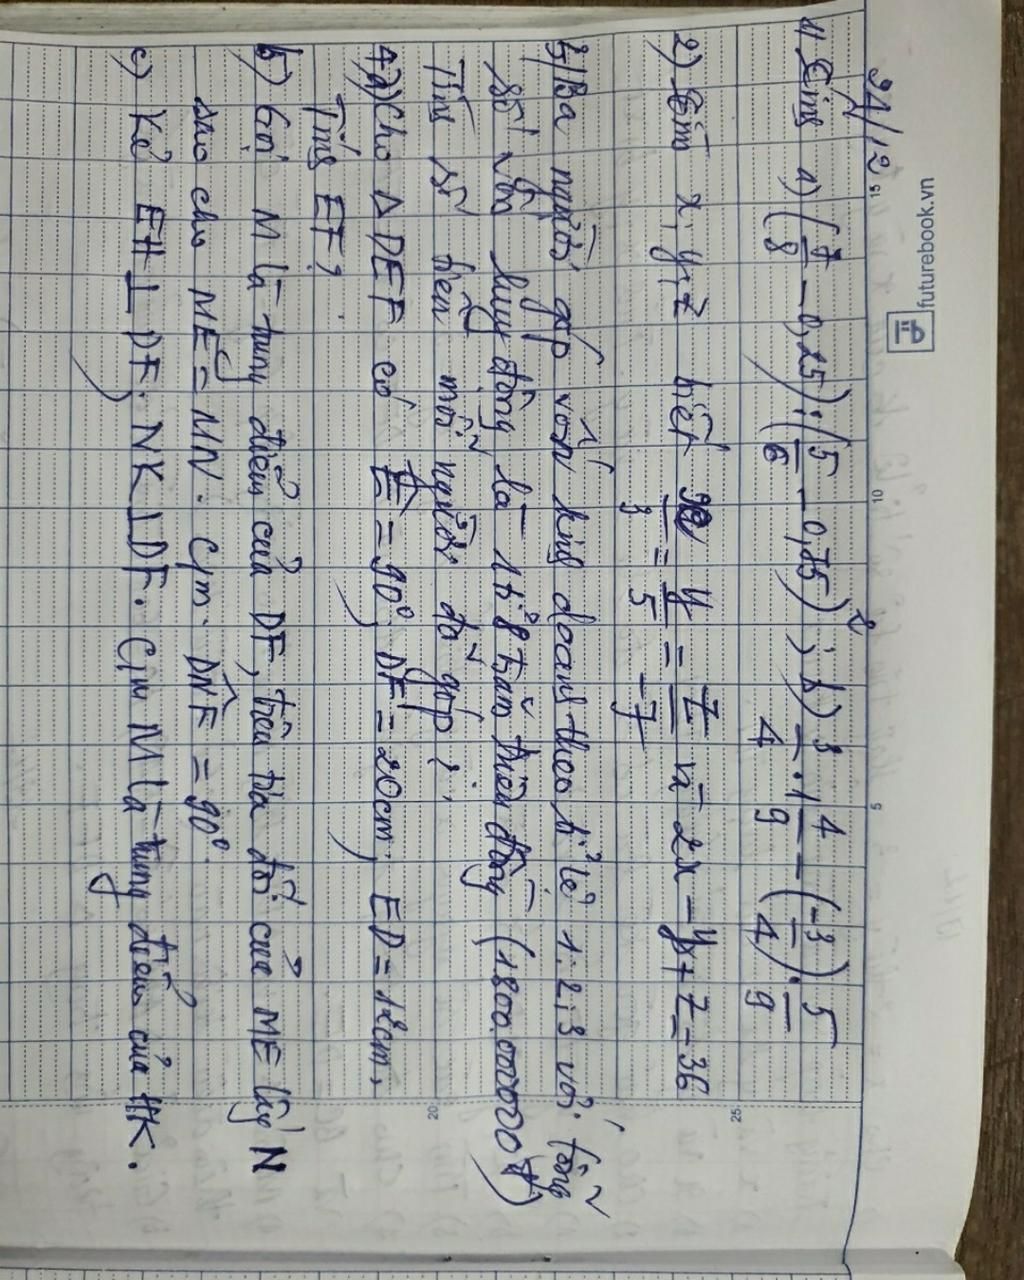 futurebook.vn
24/12
1) Tính a) (7/8 - 0,25) : (5/6 - 0,75)² ; b) 3/4 . 1 4/9 - (-3/4) . 5/9
2) Tìm x, y, z biết x/3 = y/5 = z/-7 và 2x - y + z = 36
3) Ba người góp vốn kinh doanh theo tỉ lệ 1:2:3 với tổng
số vốn huy động là 1 tỉ 8 trăm triệu đồng (1800.000000 đ)
Tính số tiền mỗi người đã góp ?
4) a) Cho Δ DEF có Ê = 90° DF = 20cm ; ED = 12cm,
Tính EF ?
b) Gọi M là trung điểm của DF, trên tia đối của ME lấy N
sao cho ME = MN. C/m. DNF = 90°.
c) Kẻ EH ⊥ DF. NK ⊥ DF. C/m M là trung điểm của HK.